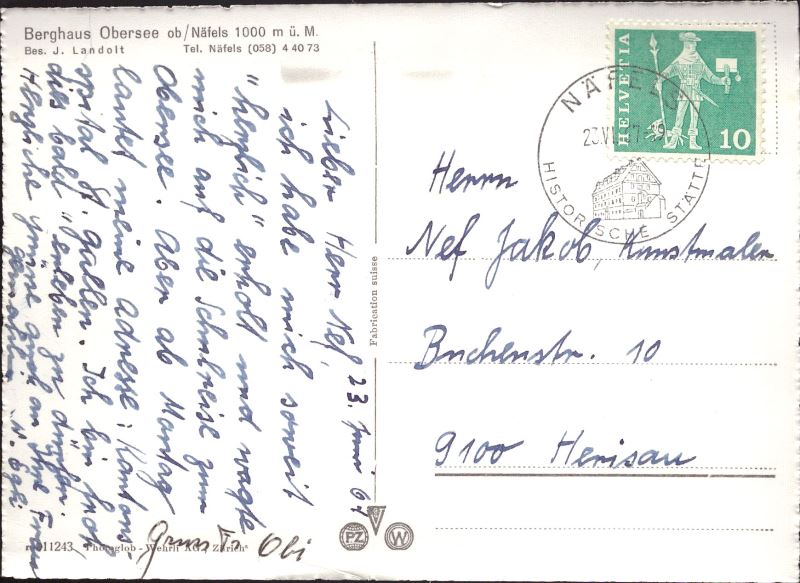 Berghaus Obersee ob/Näfels 1000 m ü. M.
Bes. J. Landolt Tel. Näfels (058) 4 40 73
23. Juni 67
Lieber Herr Nef,
ich habe mich soweit
"herrlich" erholt und wagte
mich auf die Schulreise zum
Obersee. Aber ab Montag
lautet meine Adresse: Kantons-
spital St. Gallen. Ich bin froh
dies bald "erleben zu dürfen.
Herzliche Grüsse auch an Ihre Frau
Gruss Obi
11243 Photoglob-Wehrli AG, Zürich
Fabrication suisse
PZ
W
HELVETIA
10
NÄFELS
HISTORISCHE STÄTTE
Herrn
Nef Jakob, Kunstmaler
Buchenstr. 10
9100 Herisau